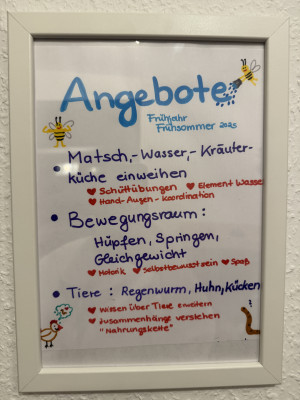 Angebote
Frühjahr
Frühsommer 2025
• Matsch,-Wasser,-Kräuter-
küche einweihen
♥ Schüttübungen ♥ Element Wasser
♥ Hand-Augen-Koordination
• Bewegungsraum:
Hüpfen, Springen,
Gleichgewicht
♥ Motorik ♥ Selbstbewusstsein ♥ Spaß
• Tiere: Regenwurm, Huhn, Kücken
♥ Wissen über Tiere erweitern
♥ Zusammenhänge verstehen
"Nahrungskette"